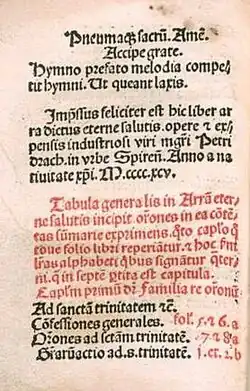 Pneumaq̃ sacrũ. Amẽ.
Accipe grate.
Hymno prefato melodia compe-
tit hymni. Ut queant laxis.
Imp̃ssus feliciter est hic liber ar
ra dictus eterne salutis. opere & ex
pensis industriosi viri mgr̃i Petri
drach. in vrbe Spireñ. Anno a na
tiuitate xp̃i. M.cccc.xcv.
Tabula generalis in Arrã eter-
ne salutis incipit. or̃ones in ea cõtẽ-
tas sũmarie exprimens. q̃to capl̃o q̃
toue folio libri reperiãtur. & hoc fm̃
lr̃as alphabeti quibus signãtur q̃ter
ni. q̃ in septẽ p̃tita est capitula.
Capl̃m primũ dr̃ Familiare or̃onũ
Ad sanctã trinitatem &c̃.
Cõfessiones generales. fol. 5. & 6. a
Or̃ones ad sctãm trinitatẽ. 7. & 8 a
Gr̃aruactio ad. s. trinitatẽ. 1. et. 2. b